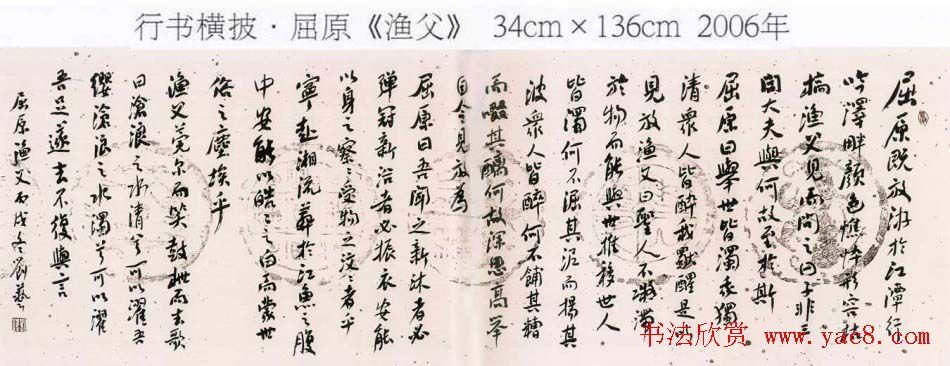 行书横披·屈原《渔父》 34cm×136cm 2006年
屈原既放游於江潭行
吟澤畔顏色憔悴形容枯
槁漁父見而問之曰子非三
閭大夫與何故至於斯
屈原曰舉世皆濁我獨
清衆人皆醉我獨醒是以
見放漁父曰聖人不凝滯
於物而能與世推移世人
皆濁何不淈其泥而揚其
波衆人皆醉何不餔其糟
而歠其醨何故深思高舉
自令見放為
屈原曰吾聞之新沐者必
彈冠新浴者必振衣安能
以身之察々受物之汶々者乎
寧赴湘流葬於江魚之腹
中安能以皓々之白而蒙世
俗之塵埃乎
漁父莞尔而笑鼓枻而去歌
曰滄浪之水清兮可以濯吾
纓滄浪之水濁兮可以濯
吾足遂去不復與言
屈原漁父丙戌冬劉藝
书法欣赏 www.yac8.com